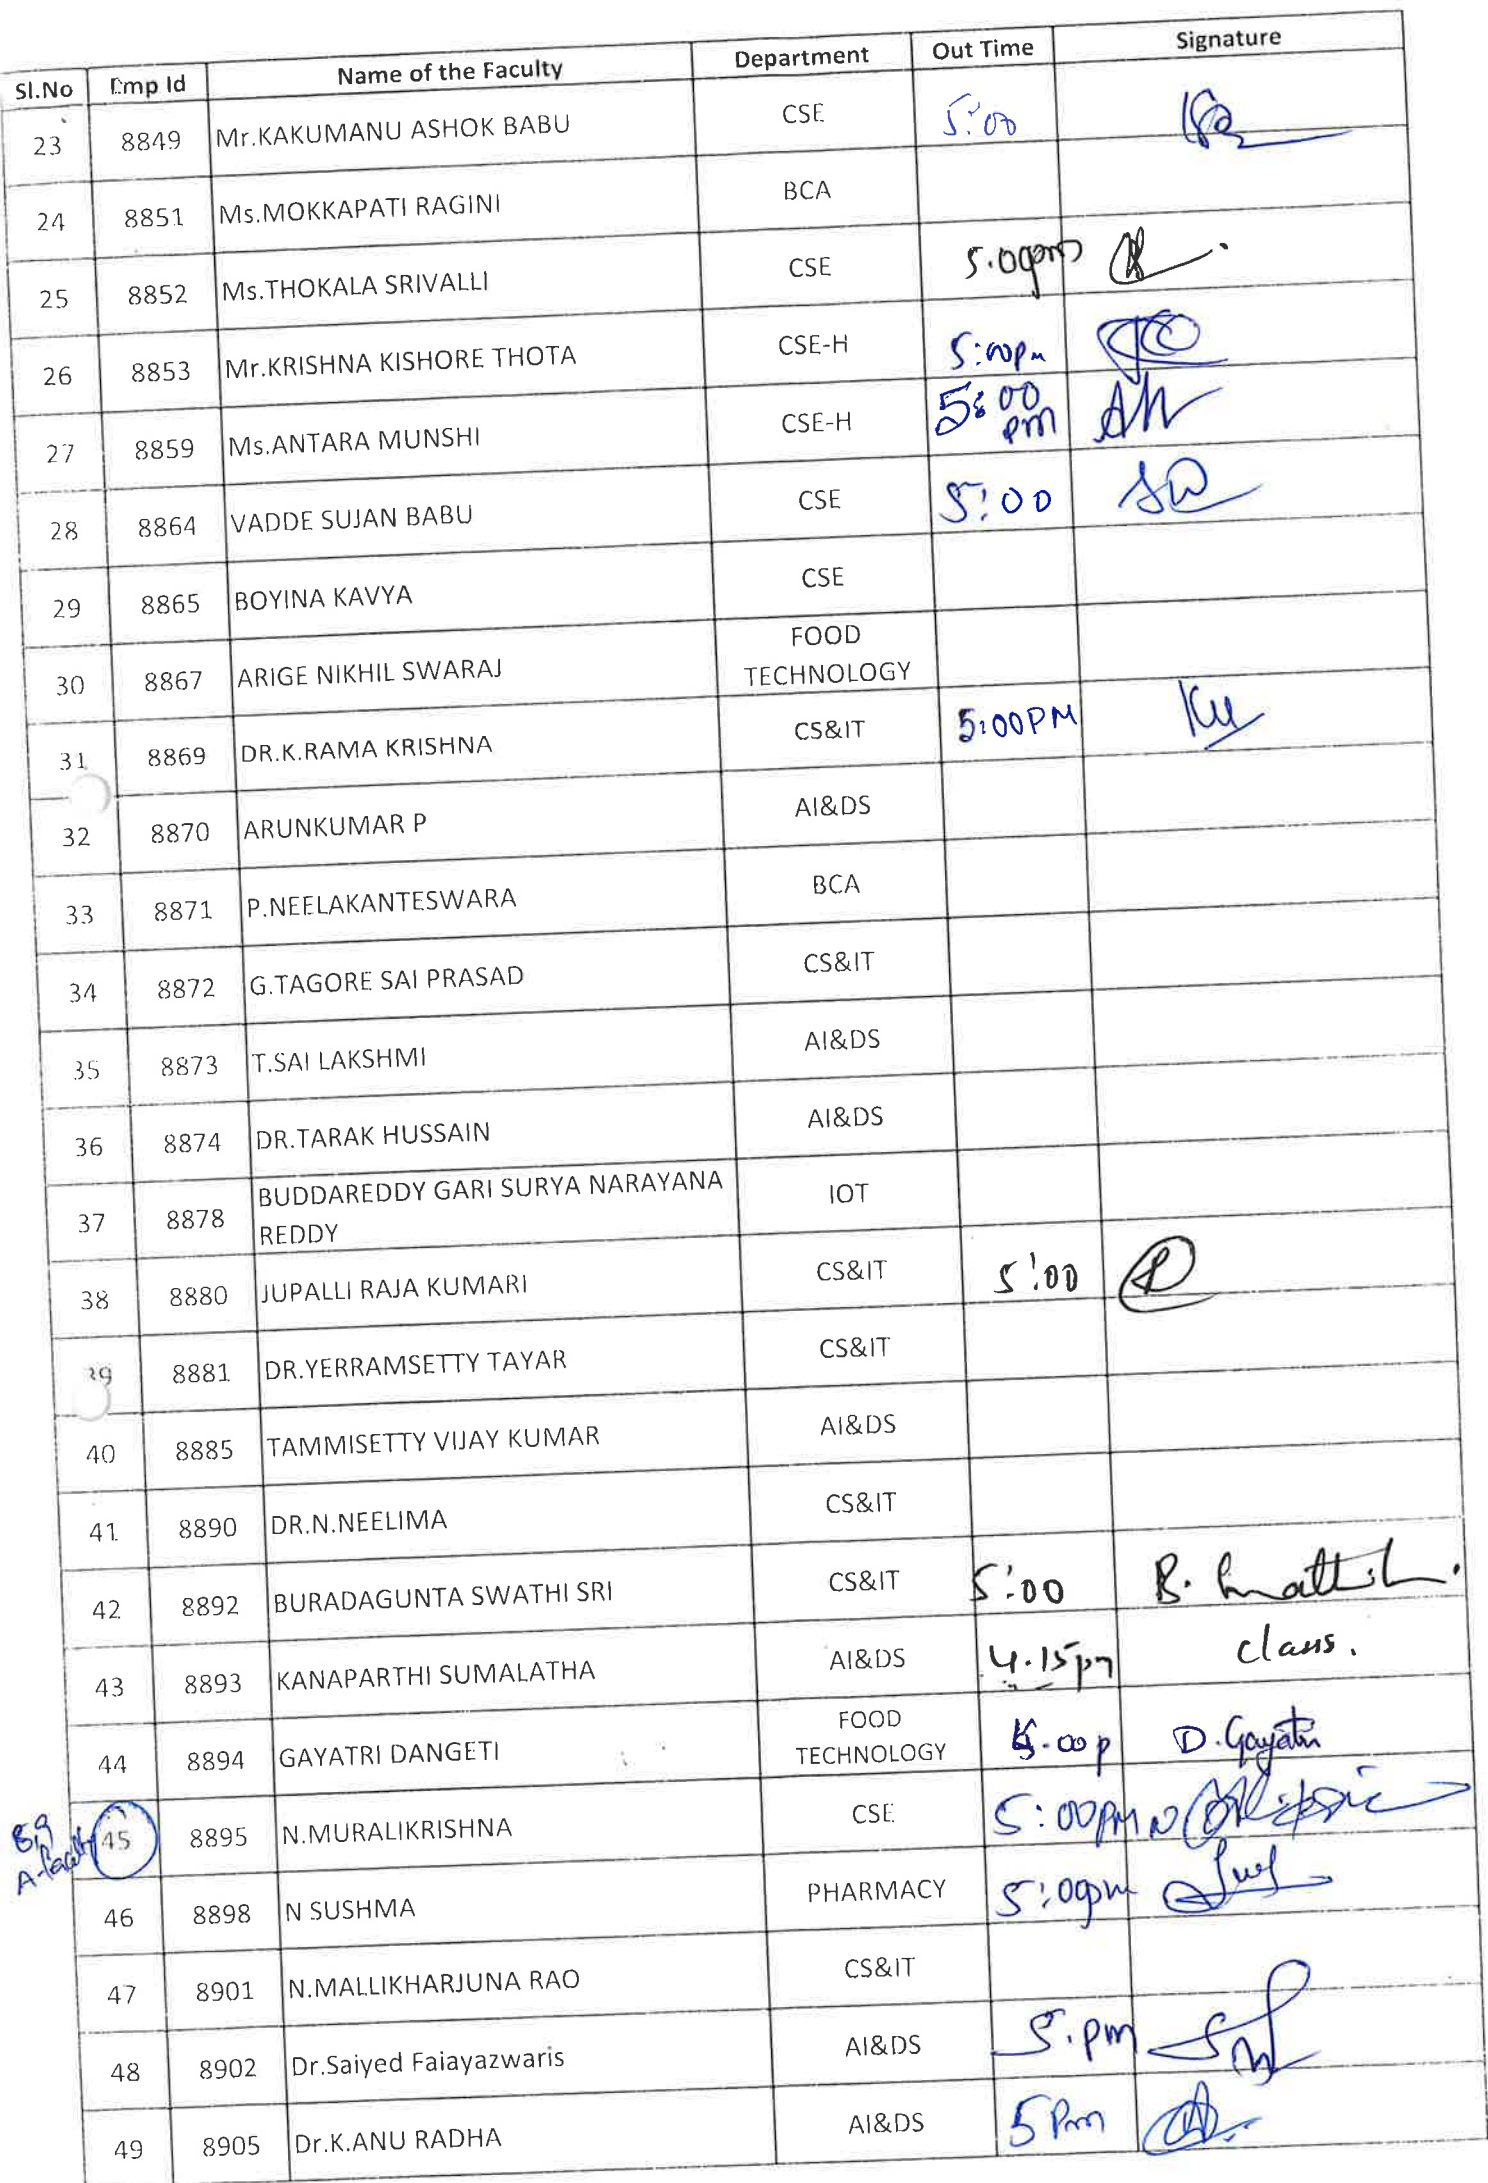 Sl.No Emp Id Name of the Faculty Department Out Time Signature
23 8849 Mr.KAKUMANU ASHOK BABU CSE 5:00
24 8851 Ms.MOKKAPATI RAGINI BCA
25 8852 Ms.THOKALA SRIVALLI CSE 5.00pm
26 8853 Mr.KRISHNA KISHORE THOTA CSE-H 5:00pm
27 8859 Ms.ANTARA MUNSHI CSE-H 5:00 pm
28 8864 VADDE SUJAN BABU CSE 5:00
29 8865 BOYINA KAVYA CSE
30 8867 ARIGE NIKHIL SWARAJ FOOD TECHNOLOGY
31 8869 DR.K.RAMA KRISHNA CS&IT 5:00PM
32 8870 ARUNKUMAR P AI&DS
33 8871 P.NEELAKANTESWARA BCA
34 8872 G.TAGORE SAI PRASAD CS&IT
35 8873 T.SAI LAKSHMI AI&DS
36 8874 DR.TARAK HUSSAIN AI&DS
37 8878 BUDDAREDDY GARI SURYA NARAYANA REDDY IOT
38 8880 JUPALLI RAJA KUMARI CS&IT 5:00
39 8881 DR.YERRAMSETTY TAYAR CS&IT
40 8885 TAMMISETTY VIJAY KUMAR AI&DS
41 8890 DR.N.NEELIMA CS&IT
42 8892 BURADAGUNTA SWATHI SRI CS&IT 5:00 B.
43 8893 KANAPARTHI SUMALATHA AI&DS 4.15pm class.
44 8894 GAYATRI DANGETI FOOD TECHNOLOGY 5.00p D.Gayatri
45 8895 N.MURALIKRISHNA CSE 5:00PM
46 8898 N SUSHMA PHARMACY 5:00pm
47 8901 N.MALLIKHARJUNA RAO CS&IT
48 8902 Dr.Saiyed Faiayazwaris AI&DS 5.pm
49 8905 Dr.K.ANU RADHA AI&DS 5 Pm